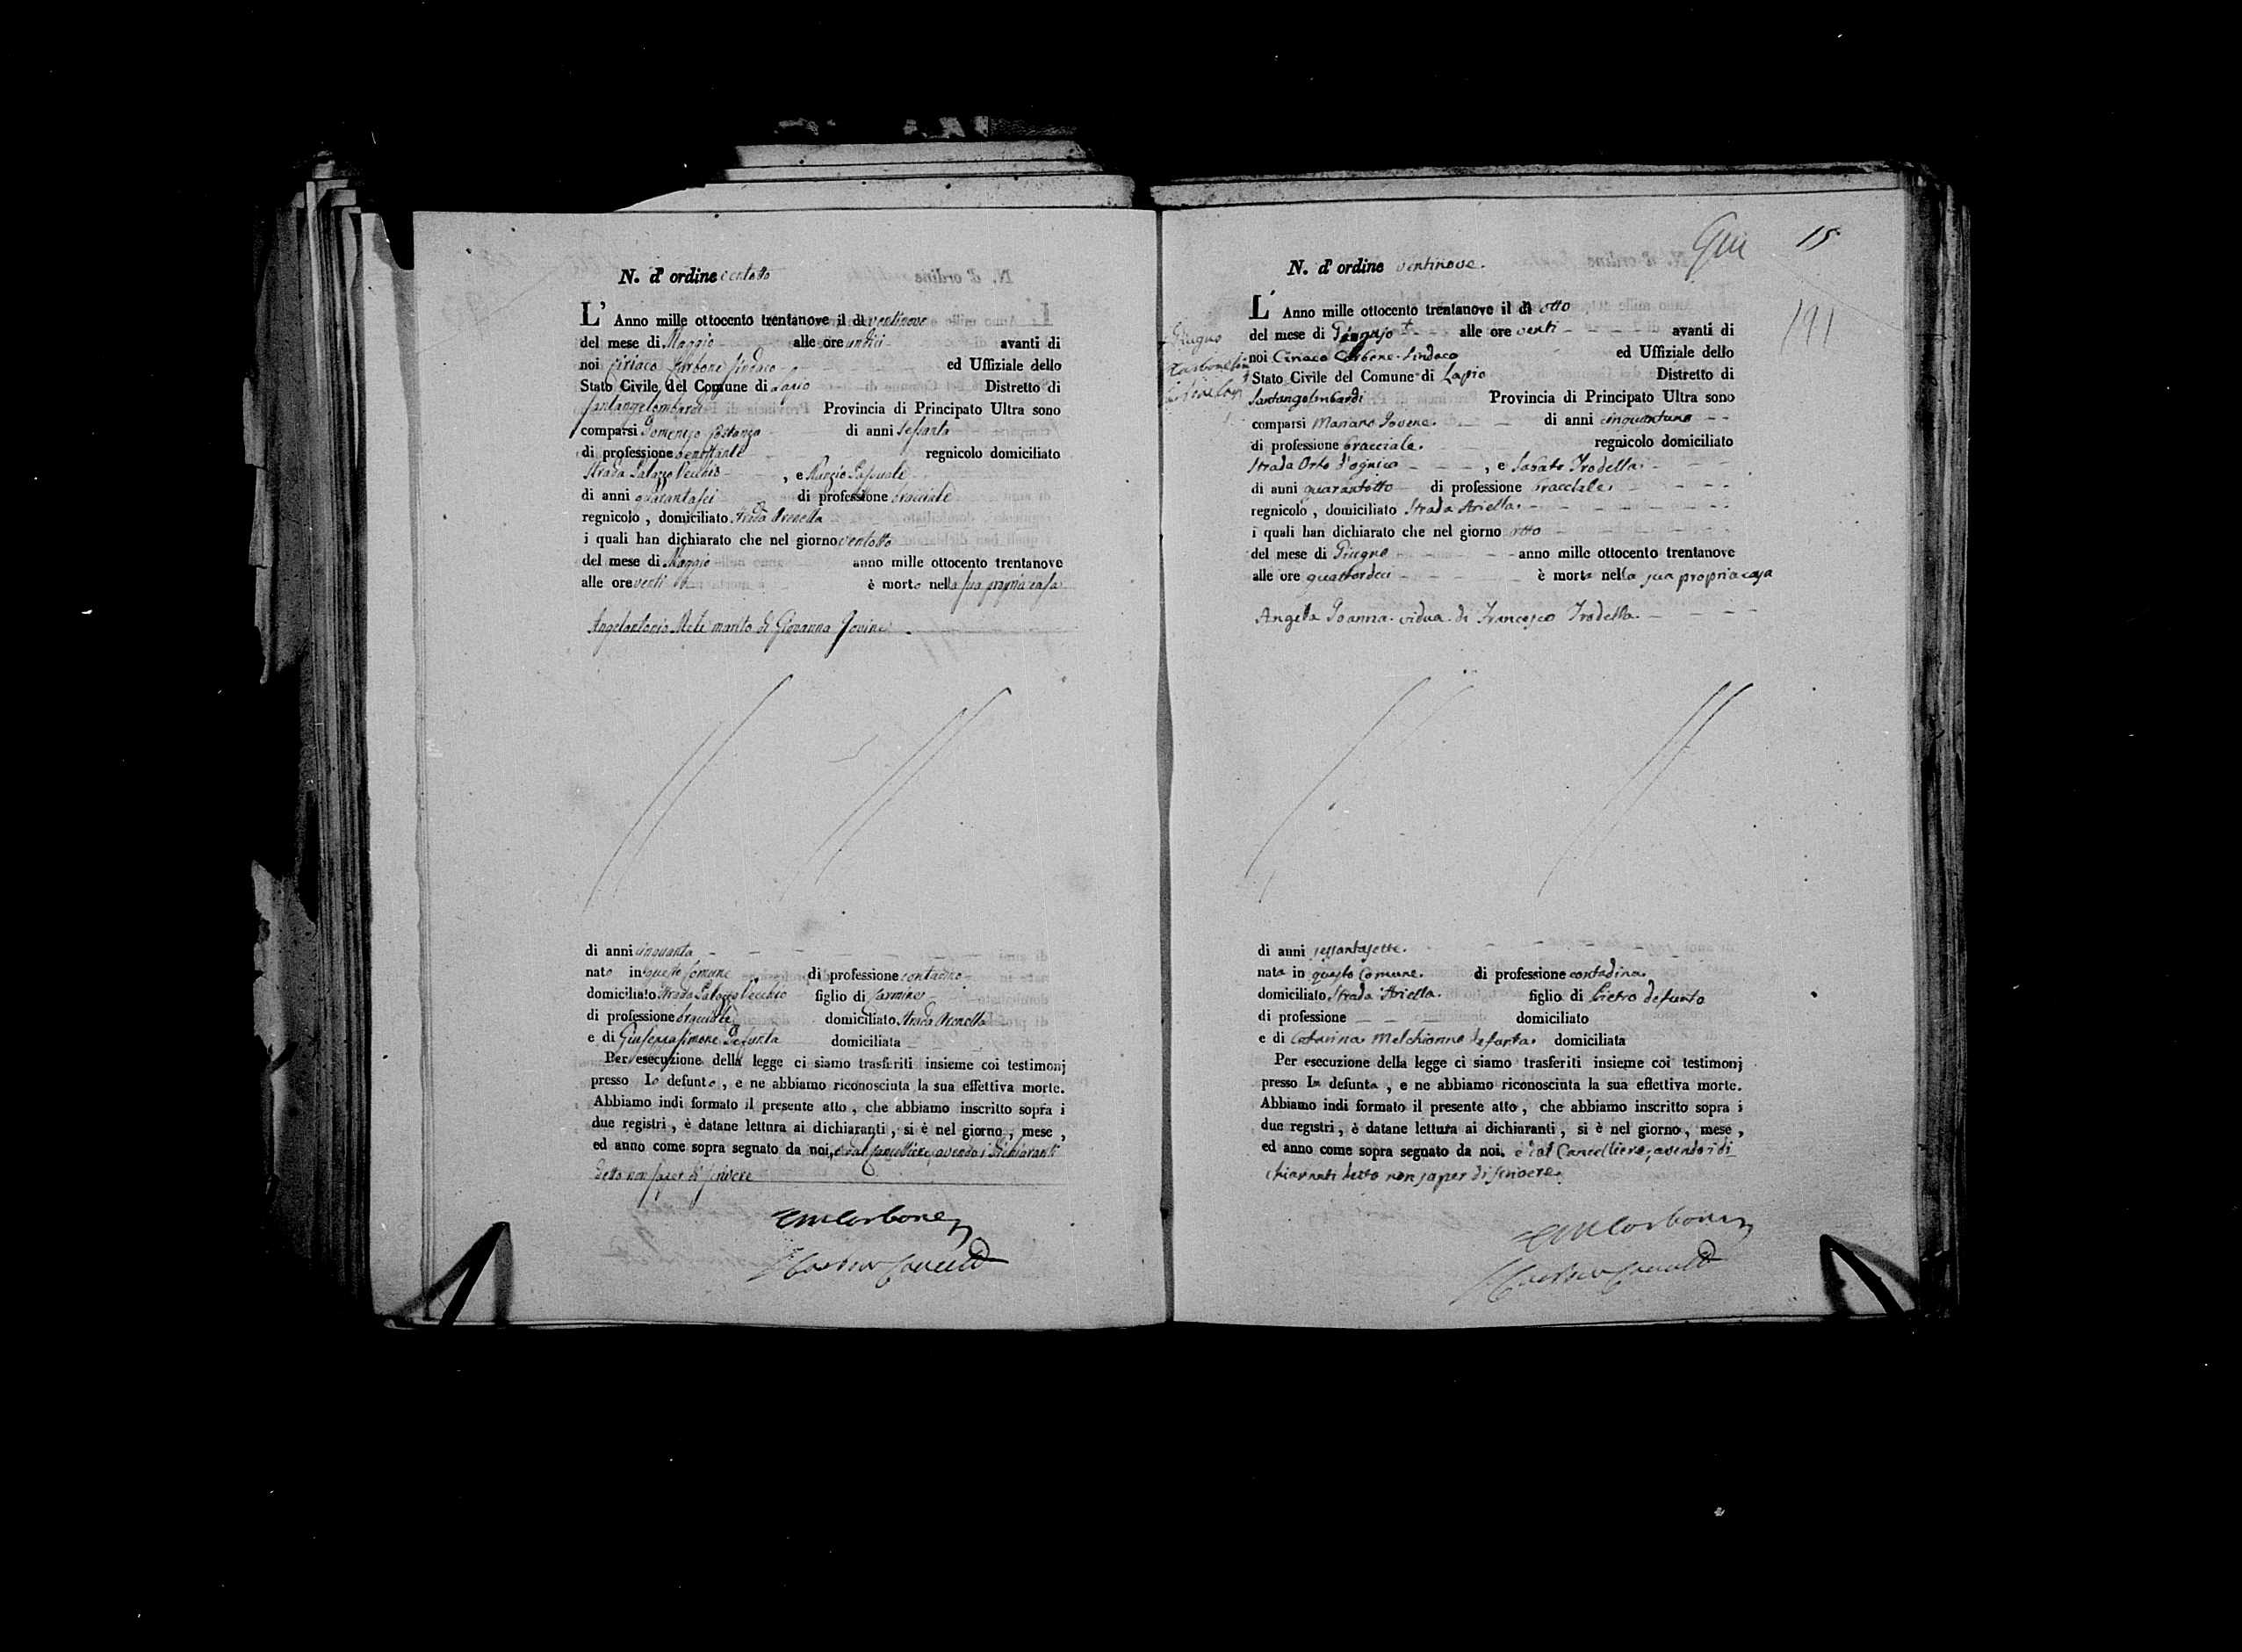 N. d' ordine ventotto
L' Anno mille ottocento trentanove il dì ventinove
del mese di Maggio alle ore undici avanti di
noi Ciriaco Carbone Sindaco ed Uffiziale dello
Stato Civile del Comune di Lapio Distretto di
Santangelombardi Provincia di Principato Ultra sono
comparsi Domenico Costanza di anni sessanta
di professione regnicolo domiciliato
Strada Palazzo Vecchio , e Nunzio Pascuale
di anni quarantasei di professione bracciale
regnicolo , domiciliato Strada Arenella
i quali han dichiarato che nel giorno ventotto
del mese di Maggio anno mille ottocento trentanove
alle ore venti è morto nella sua propria casa
Angelantonio Mele marito di Giovanna Jovine
di anni cinquanta
nato in questo Comune di professione contadino
domiciliato Strada Palazzo Vecchio figlio di Carmine
di professione bracciale domiciliato Strada Arenella
e di Giuseppa Simone defunta domiciliata
Per esecuzione della legge ci siamo trasferiti insieme coi testimonj
presso lo defunto , e ne abbiamo riconosciuta la sua effettiva morte.
Abbiamo indi formato il presente atto , che abbiamo inscritto sopra i
due registri , è datane lettura ai dichiaranti , si è nel giorno , mese ,
ed anno come sopra segnato da noi, e dal Cancelliere, avendo i dichiaranti
detto non saper di scrivere
Carbone
Giu 15
191
N. d' ordine ventinove.
L' Anno mille ottocento trentanove il dì otto
del mese di Giugno + alle ore venti avanti di
noi Ciriaco Carbone Sindaco ed Uffiziale dello
Stato Civile del Comune di Lapio Distretto di
Santangelombardi Provincia di Principato Ultra sono
comparsi Mariano Jovene di anni cinquantuno
di professione bracciale. regnicolo domiciliato
Strada Orto d'ognico , e Sabato Trodella
di anni quarantotto di professione bracciale
regnicolo , domiciliato Strada Ariella.
i quali han dichiarato che nel giorno otto
del mese di Giugno anno mille ottocento trentanove
alle ore quattordeci è morta nella sua propria casa
Angela Joanna vidua di Francesco Trodella
di anni sessantasette.
nata in questo Comune. di professione contadina.
domiciliato Strada Ariella. figlio di Pietro defunto
di professione domiciliato
e di Catarina Melchionno defunta domiciliata
Per esecuzione della legge ci siamo trasferiti insieme coi testimonj
presso la defunta , e ne abbiamo riconosciuta la sua effettiva morte.
Abbiamo indi formato il presente atto , che abbiamo inscritto sopra i
due registri , è datane lettura ai dichiaranti , si è nel giorno , mese ,
ed anno come sopra segnato da noi. e dal Cancelliere, avendo i di
chiaranti detto non saper di scrivere.
Carbone
Giugno